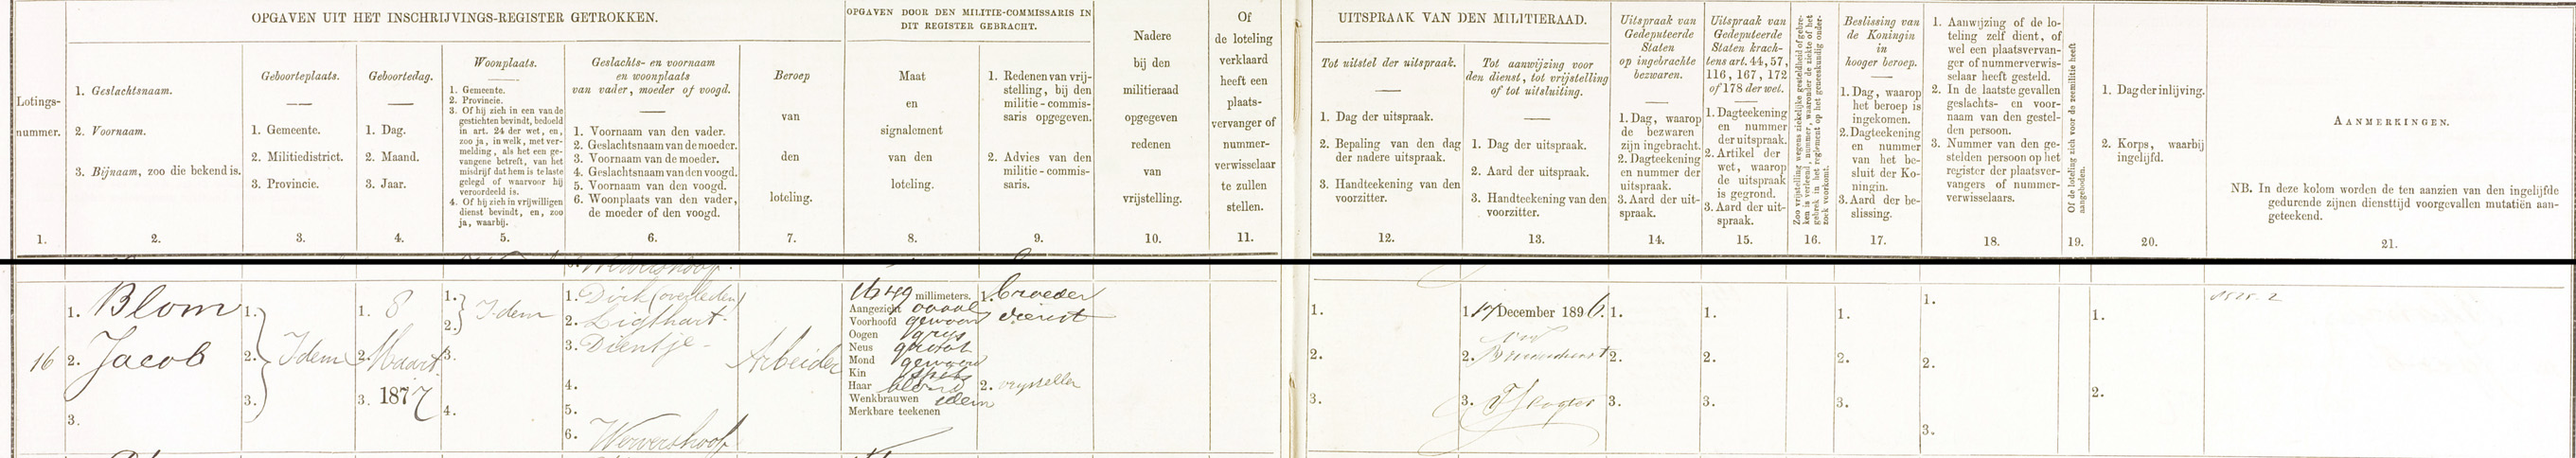 OPGAVEN UIT HET INSCHRIJVINGS-REGISTER GETROKKEN.
Lotings-
nummer.
1.
1. Geslachtsnaam.
2. Voornaam.
3. Bijnaam, zoo die bekend is.
2.
Geboorteplaats.
1. Gemeente.
2. Militiedistrict.
3. Provincie.
3.
Geboortedag.
1. Dag.
2. Maand.
3. Jaar.
4.
Woonplaats.
1. Gemeente.
2. Provincie.
3. Of hij zich in een van de
gestichten bevindt, bedoeld
in art. 24 der wet, en,
zoo ja, in welk, met ver-
melding, als het een ge-
vangene betreft, van het
misdrijf dat hem is te laste
gelegd of waarvoor hij
veroordeeld is.
4. Of hij zich in vrijwilligen
dienst bevindt, en, zoo
ja, waarbij.
5.
Geslachts- en voornaam
en woonplaats
van vader, moeder of voogd.
1. Voornaam van den vader.
2. Geslachtsnaam van de moeder.
3. Voornaam van de moeder.
4. Geslachtsnaam van den voogd.
5. Voornaam van den voogd.
6. Woonplaats van den vader,
de moeder of den voogd.
6.
Beroep
van
den
loteling.
7.
OPGAVEN DOOR DEN MILITIE-COMMISSARIS IN
DIT REGISTER GEBRACHT.
Maat
en
signalement
van den
loteling.
8.
1. Redenen van vrij-
stelling, bij den
militie-commis-
saris opgegeven.
2. Advies van den
militie-commis-
saris.
9.
Nadere
bij den
militieraad
opgegeven
redenen
van
vrijstelling.
10.
Of
de loteling
verklaard
heeft een
plaats-
vervanger of
nummer-
verwisselaar
te zullen
stellen.
11.
UITSPRAAK VAN DEN MILITIERAAD.
Tot uitstel der uitspraak.
1. Dag der uitspraak.
2. Bepaling van den dag
der nadere uitspraak.
3. Handteekening van den
voorzitter.
12.
Tot aanwijzing voor
den dienst, tot vrijstelling
of tot uitsluiting.
1. Dag der uitspraak.
2. Aard der uitspraak.
3. Handteekening van den
voorzitter.
13.
Uitspraak van
Gedeputeerde
Staten
op ingebrachte
bezwaren.
1. Dag, waarop
de bezwaren
zijn ingebracht.
2. Dagteekening
en nummer der
uitspraak.
3. Aard der uit-
spraak.
14.
Uitspraak van
Gedeputeerde
Staten krach-
tens art. 44, 57,
116, 167, 172
of 178 der wet.
1. Dagteekening
en nummer
der uitspraak.
2. Artikel der
wet, waarop
de uitspraak
is gegrond.
3. Aard der uit-
spraak.
15.
Zoo vrijstelling wegens ziekelijke gesteldheid of gebre-
ken is verleend, nummer, waaronder de ziekte of het
gebrek in het reglement op het geneeskundig onder-
zoek voorkomt.
16.
Beslissing van
de Koningin
in
hooger beroep.
1. Dag, waarop
het beroep is
ingekomen.
2. Dagteekening
en nummer
van het be-
sluit der Ko-
ningin.
3. Aard der be-
slissing.
17.
1. Aanwijzing of de lo-
teling zelf dient, of
wel een plaatsvervan-
ger of nummerverwis-
selaar heeft gesteld.
2. In de laatste gevallen
geslachts- en voor-
naam van den gestel-
den persoon.
3. Nummer van den ge-
stelden persoon op het
register der plaatsver-
vangers of nummer-
verwisselaars.
18.
Of de loteling zich voor de zeemilitie heeft
aangeboden.
19.
1. Dag der inlijving.
2. Korps, waarbij
ingelijfd.
20.
AANMERKINGEN.
NB. In deze kolom worden de ten aanzien van den ingelijfde
gedurende zijnen diensttijd voorgevallen mutatiën aan-
geteekend.
21.
Wervershoof.
16
1. Blom
2. Jacob
3.
1.
2. Idem
3.
1. 8
2. Maart
3. 1877
1. Idem
2.
3.
4.
1. Dirk (overleden)
2. Ligthart
3. Dientje
4.
5.
6. Wervershoof
Arbeider
1649 millimeters.
Aangezicht ovaal
Voorhoofd gewoon
Oogen grijs
Neus groot
Mond gewoon
Kin spits
Haar blond
Wenkbrauwen idem
Merkbare teekenen
1. broeder
dienst
2.
1.
2.
3.
1. 17 December 1896.
2.
3.
1.
2.
3.
1.
2.
3.
1.
2.
3.
1.
2.
3.
1.
2.